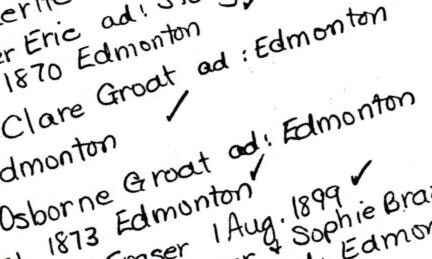 Eric ad:
1870 Edmonton
Clare Groat ad: Edmonton
dmonton ✓
Osborne Groat ad: Edmonton
1873 Edmonton ✓
1 Aug. 1899 ✓
& Sophie Bra
Edmon